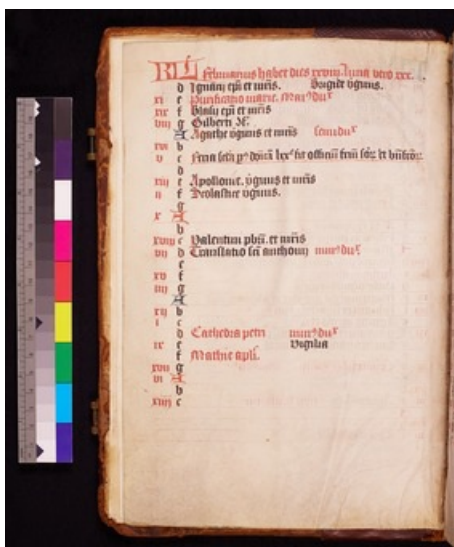 KL Februarius habet dies xxviii. luna vero xxx.
d Ignatii epi et mris. Brigide virginis.
xi e Purificatio marie. Mai' du'
xix f Blasii epi et mris
viii g Gilberti
A Agathe virginis et mris semidu'
xvi b
v c
d
xiii e Apollonie. virginis et mris
ii f Scolastice virginis.
g
x A
b
xviii c Valentini pbri. et mris
vii d Translatio sci anthonii
e
xv f
iiii g
A
xii b
i c
d Cathedra petri
ix e Vigilia
f Mathie apli.
xvii g
vi A
b
xiiii c